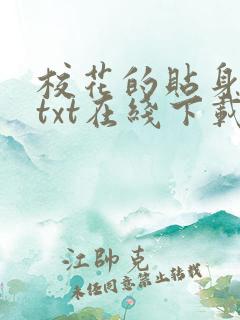 校花的貼身
txt在綫下載
江帥克
未任同意禁止轉載